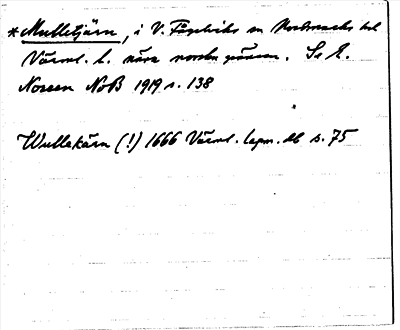 *Mulletjärn, i V. Fågelviks sn Nordmarks hd
Värml. l. nära norska gränsen. Se E.
Noreen NoB 1919 s. 138
Wullekärn (!) 1666 Värml. lapm. db s. 75